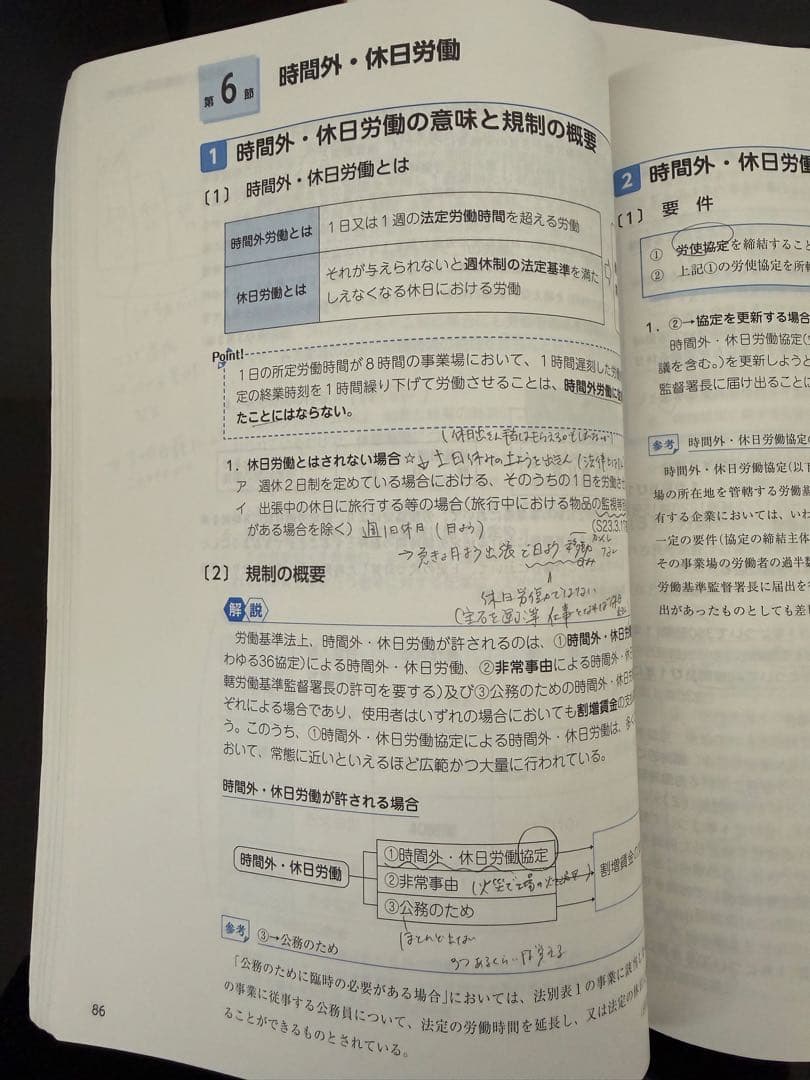 第6節 時間外・休日労働
1 時間外・休日労働の意味と規制の概要
〔1〕 時間外・休日労働とは
時間外労働とは 1日又は1週の法定労働時間を超える労働
休日労働とは それが与えられないと週休制の法定基準を満た
しえなくなる休日における労働
Point!
1日の所定労働時間が8時間の事業場において、1時間遅刻した
定の終業時刻を1時間繰り下げて労働させることは、時間外労働に
たことにはならない。
1.休日労働とはされない場合☆
ア 週休2日制を定めている場合における、そのうちの1日を労働させ
イ 出張中の休日に旅行する等の場合(旅行中における物品の監視等
がある場合を除く) 週1日休日(日よう)
(S23.3.17
→急きょ月よう出張で日よう移動
休日労働ではない
〔2〕 規制の概要
解説
労働基準法上、時間外・休日労働が許されるのは、①時間外・休日労
わゆる36協定)による時間外・休日労働、②非常事由による時間外・休
轄労働基準監督署長の許可を要する)及び③公務のための時間外・休日
ぞれによる場合であり、使用者はいずれの場合においても割増賃金の支
う。このうち、①時間外・休日労働協定による時間外・休日労働は、多く
おいて、常態に近いといえるほど広範かつ大量に行われている。
時間外・休日労働が許される場合
時間外・休日労働
①時間外・休日労働協定
②非常事由
③公務のため
割増賃金の
ほとんど出ない
参考 ③→公務のため
「公務のために臨時の必要がある場合」においては、法別表1の事業に該当
の事業に従事する公務員について、法定の労働時間を延長し、又は法定の休
ることができるものとされている。
86
2 時間外・休日労働
〔1〕 要件
① 労使協定を締結すること
② 上記①の労使協定を所轄
1.②→協定を更新する場合
時間外・休日労働協定(
議を含む。)を更新しようと
監督署長に届け出ることに
参考 時間外・休日労働協定の
時間外・休日労働協定(以下
場の所在地を管轄する労働基
有する企業においては、いわ
一定の要件(協定の締結主体
その事業場の労働者の過半数
労働基準監督署長に届出を
出があったものとしても差し